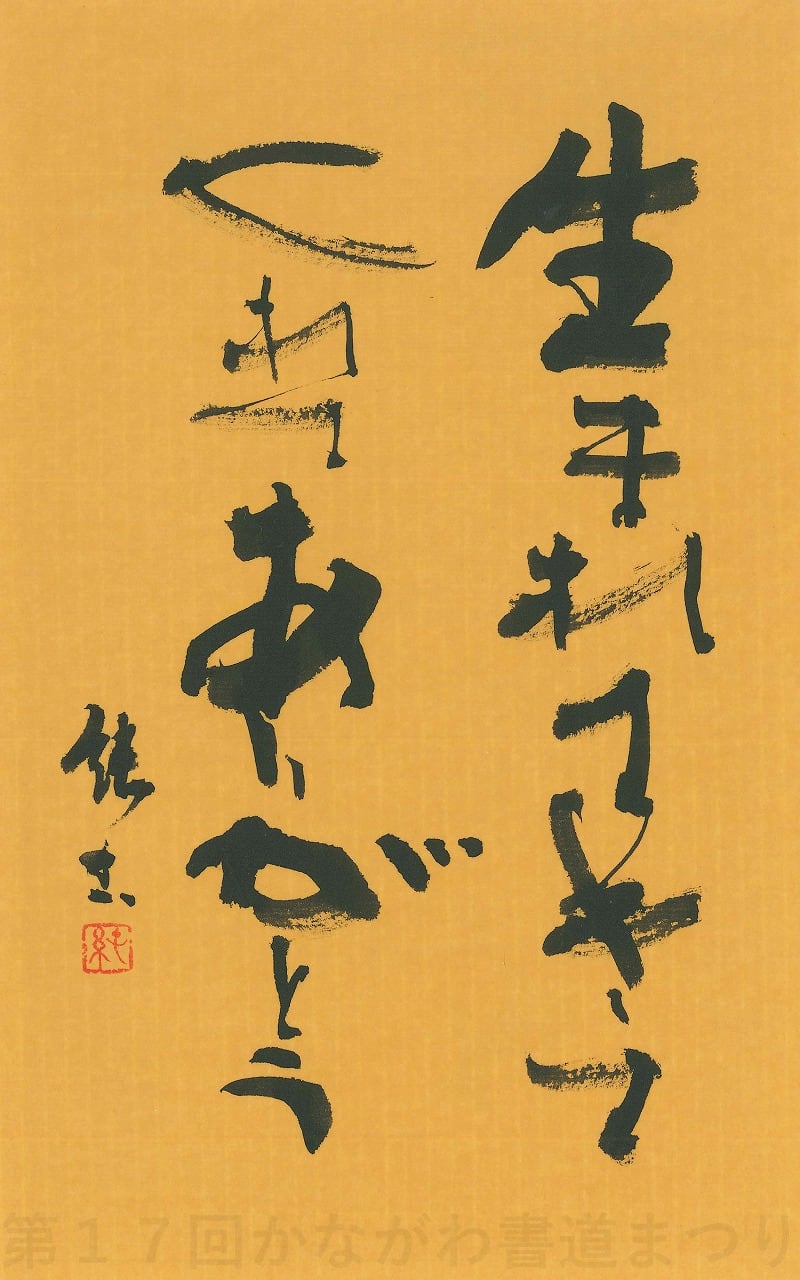 生まれてきて
くれて ありがとう
第17回かながわ書道まつり